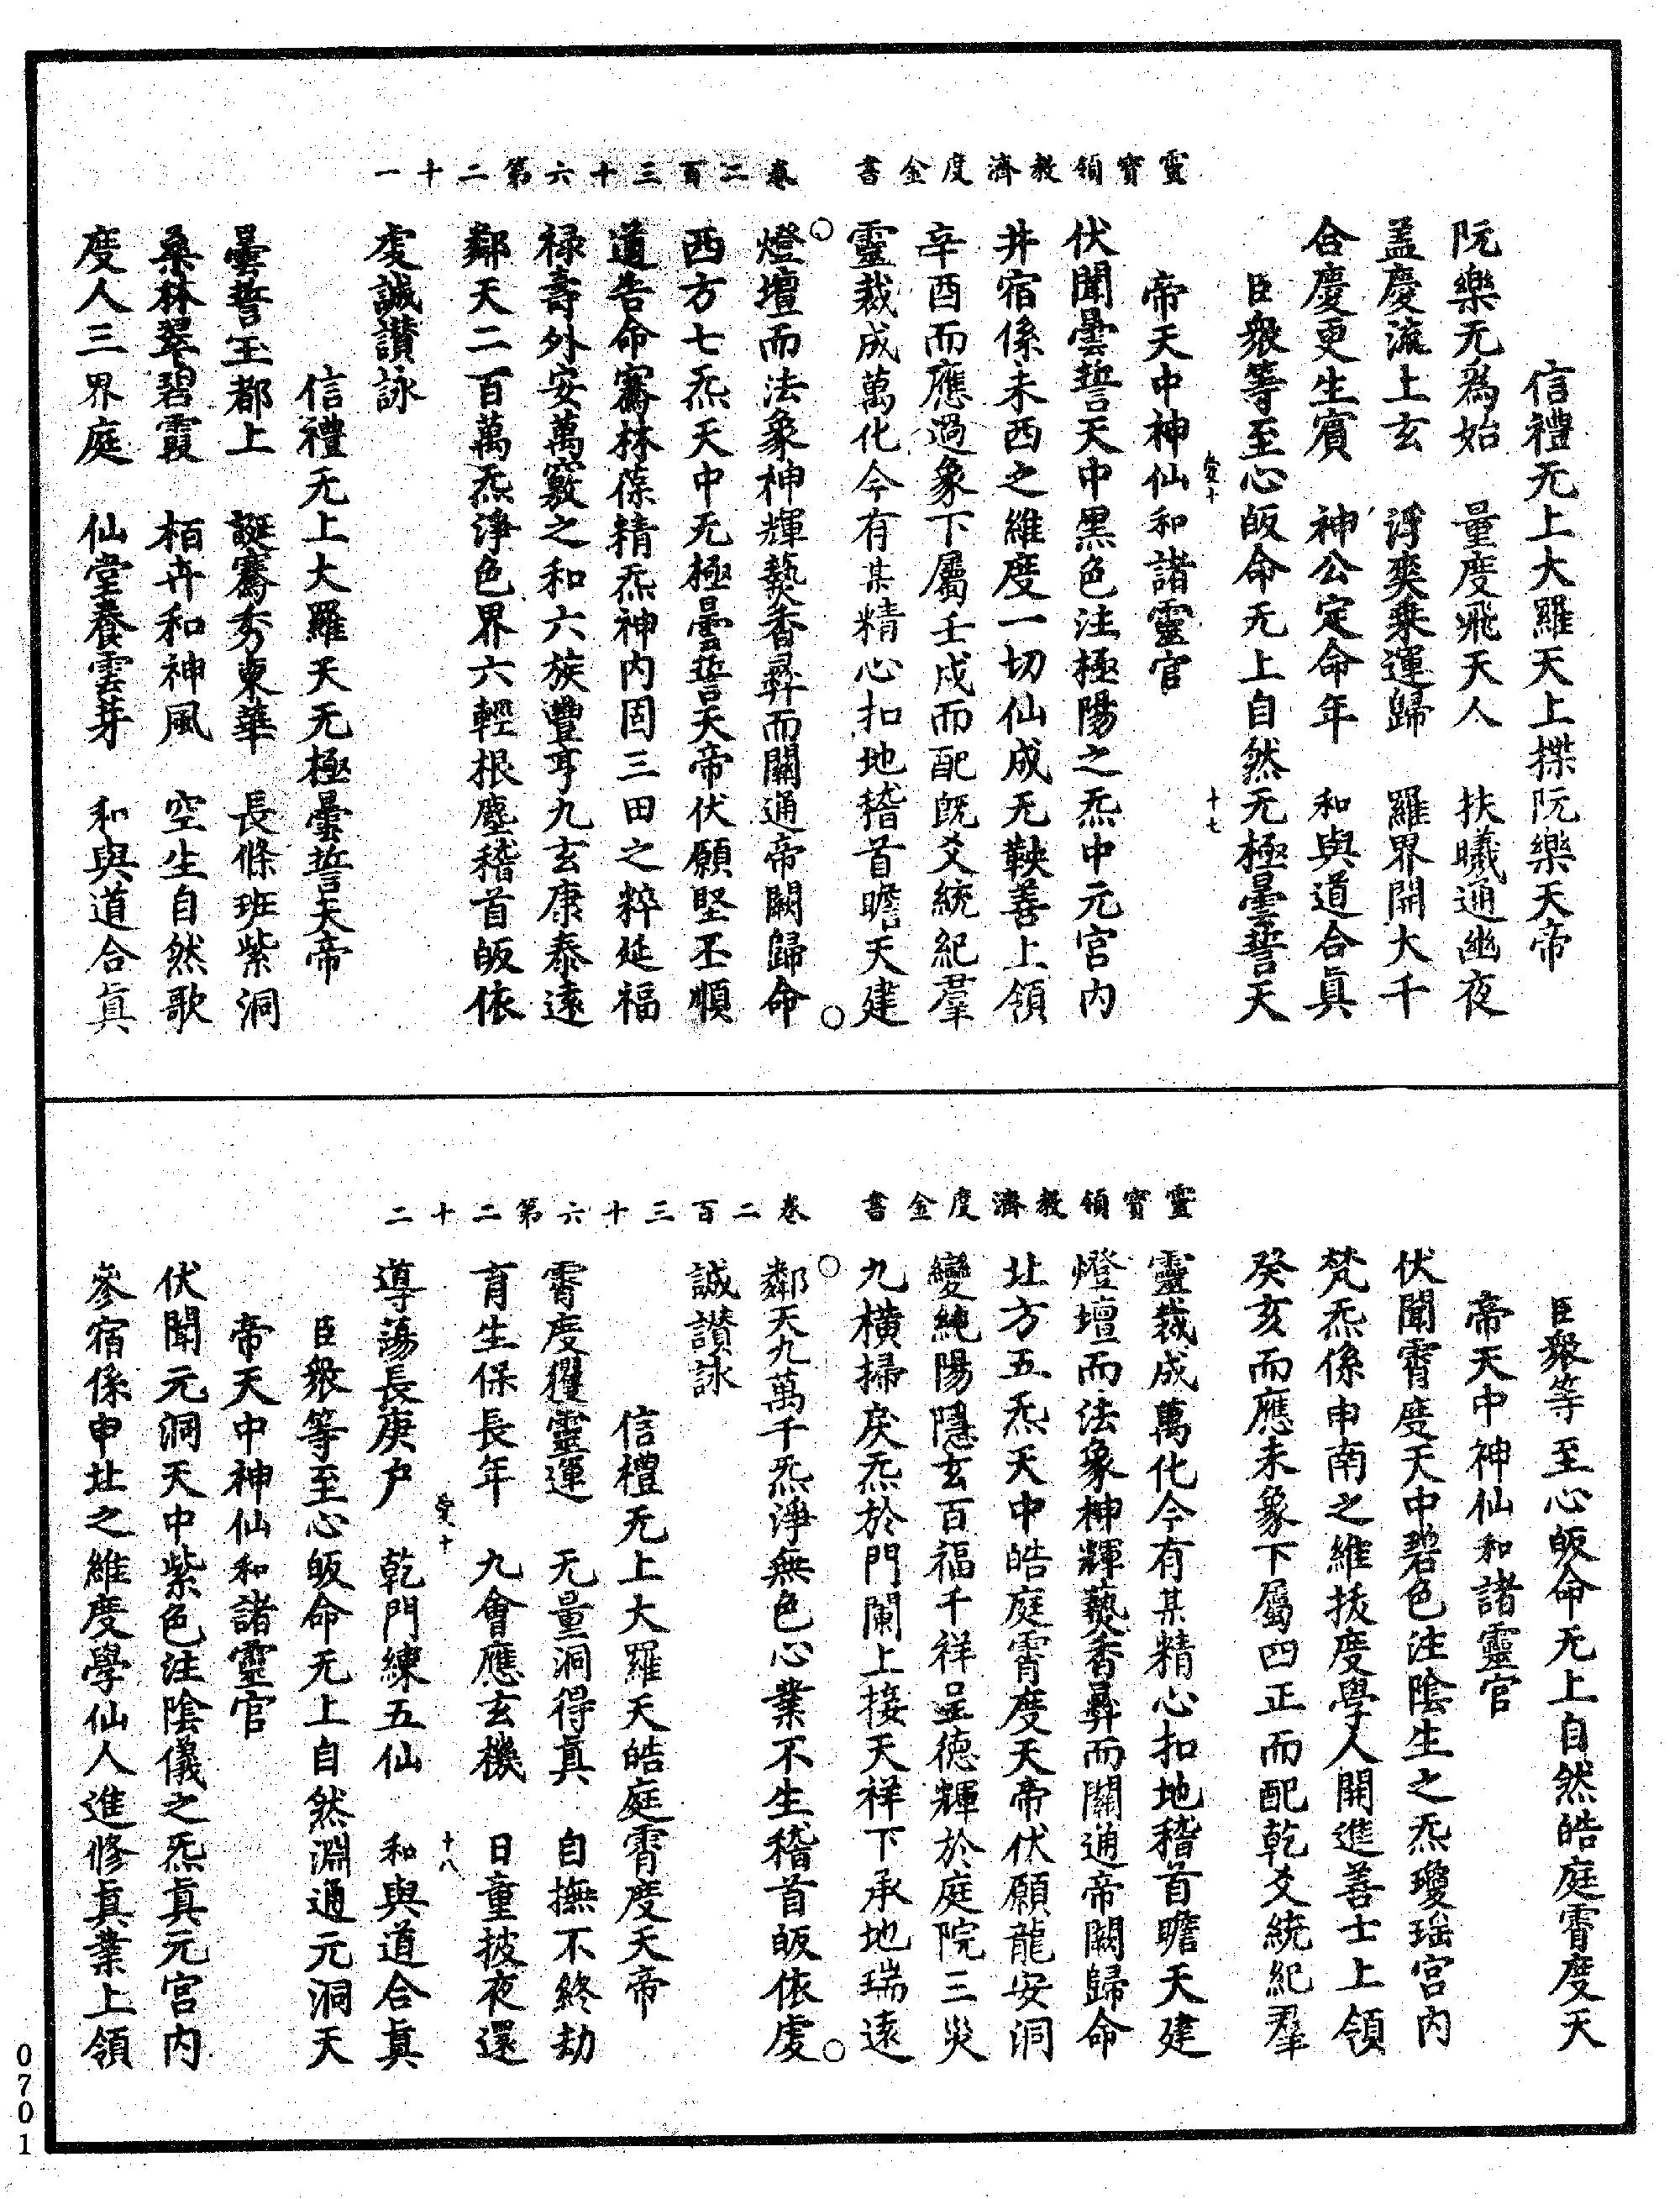 靈寶領教濟度金書　卷二百三十六第二十一
信禮无上大羅天上揲阮樂天帝
阮樂无為始　量度飛天人　扶曦通幽夜
盖慶流上玄　浮爽乗運歸　羅界開大千
合慶更生賔　神公定命年　和與道合眞
臣衆等至心皈命无上自然无極曇誓天
愛十　十七
帝天中神仙和諸靈官
伏聞曇誓天中黒色注極陽之炁中元官内
井宿係未西之維度一切仙成无鞅善上領
辛酉而應過象下屬壬戌而配旣爻統紀羣
靈裁成萬化今有某精心扣地稽首瞻天建
燈壇而法象神輝爇香彛而關通帝闕歸命
西方七炁天中无極曇誓天帝伏願堅丕順
道告命騫林葆精炁神内固三田之粹延福
禄壽外安萬竅之和六族豐亨九玄康泰逺
鄰天二百萬炁淨色界六輕根塵稽首皈依
虔誠讃詠
信禮无上大羅天无極曇誓天帝
曇誓玉都上　誕騫秀東華　長條班紫洞
桑林翠碧霞　栢卉和神風　空生自然歌
度人三界庭　仙堂養雲芽　和與道合眞
靈寶領教濟度金書　卷二百三十六第二十二
臣衆等至心皈命无上自然皓庭霄度天
帝天中神仙和諸靈官
伏聞霄度天中碧色注隂生之炁瓊瑶宫内
梵炁係申南之維抜度學人開進善士上領
癸亥而應未象下屬四正而配乾爻統紀羣
靈裁成萬化今有某精心扣地稽首瞻天建
燈壇而法象神輝爇香彛而關通帝闕歸命
北方五炁天中皓庭霄度天帝伏願龍安洞
變純陽隱玄百福千祥呈德輝於庭院三災
九横掃戾炁於門闌上接天祥下承地瑞逺
鄰天九萬千炁淨無色心業不生稽首皈依虔
誠讃詠
信禮无上大羅天皓庭霄度天帝
霄度玃靈運　无量洞得眞　自撫不終劫
育生保長年　九會應玄機　日童披夜還
愛十　十八
導蕩長庚户　乾門練五仙　和與道合眞
臣衆等至心皈命无上自然淵通元洞天
帝天中神仙和諸靈官
伏聞元洞天中紫色注隂儀之炁眞元宫内
參宿係申北之維度學仙人進修眞業上領
0701